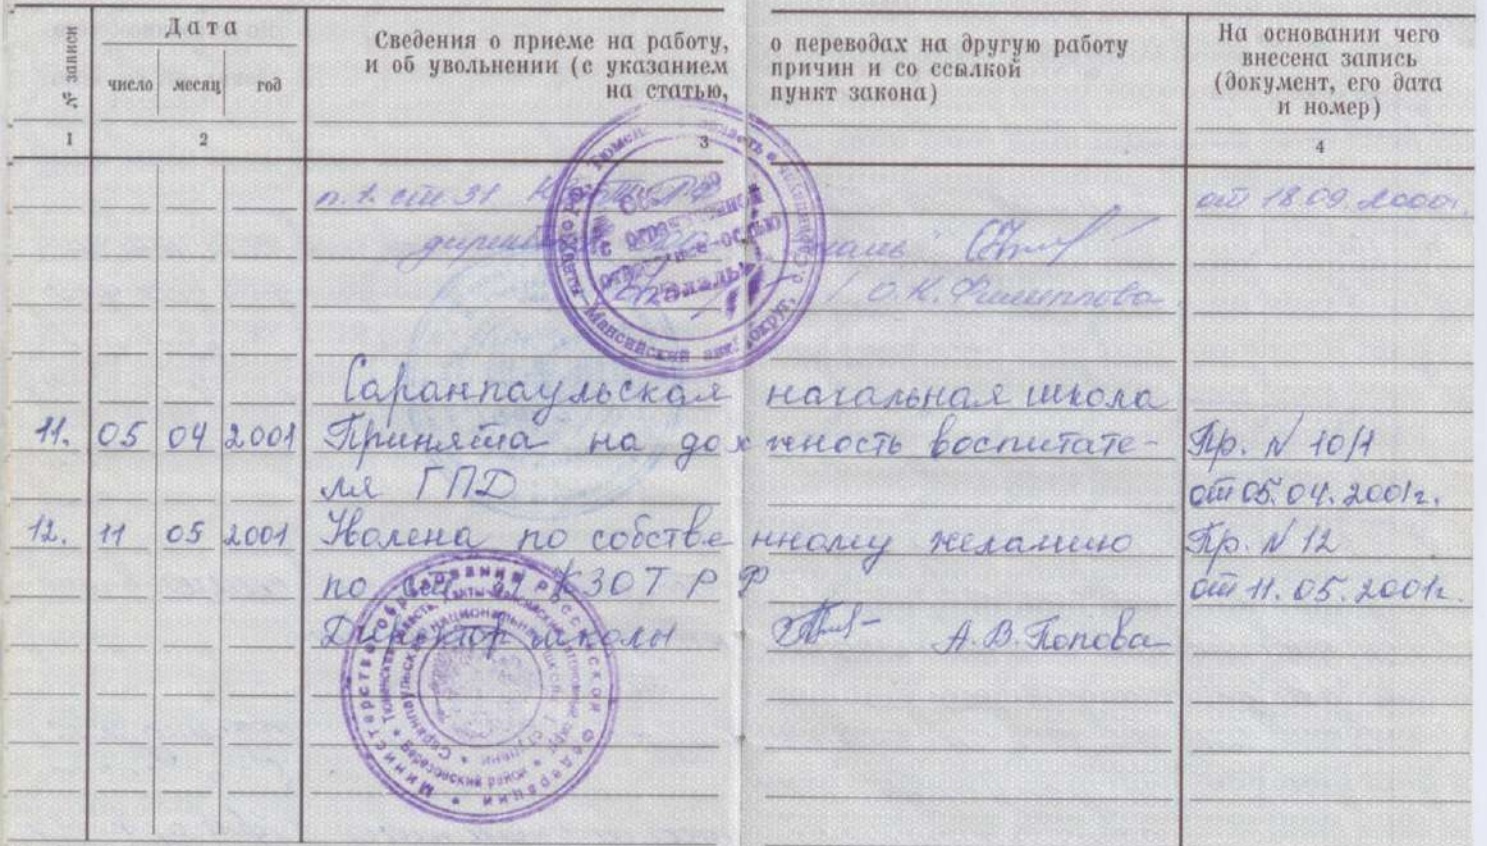 № записи
Дата
число месяц год
Сведения о приеме на работу, о переводах на другую работу
и об увольнении (с указанием причин и со ссылкой
на статью, пункт закона)
На основании чего
внесена запись
(документ, его дата
и номер)
1 2 3 4
п. 1. ст 31 от 18.09.2000г.
О.К. Филиппова
Саранпаульская начальная школа
11. 05 04 2001 Принята на должность воспитате- Пр. N 10/1
ля ГПД от 05.04.2001г.
12. 11 05 2001 Уволена по собственному желанию Пр. N 12
по ст 31 КЗОТ РФ от 11.05.2001г.
Директор школы А.В. Попова
Министерство образования Российской Федерации
Березовский район